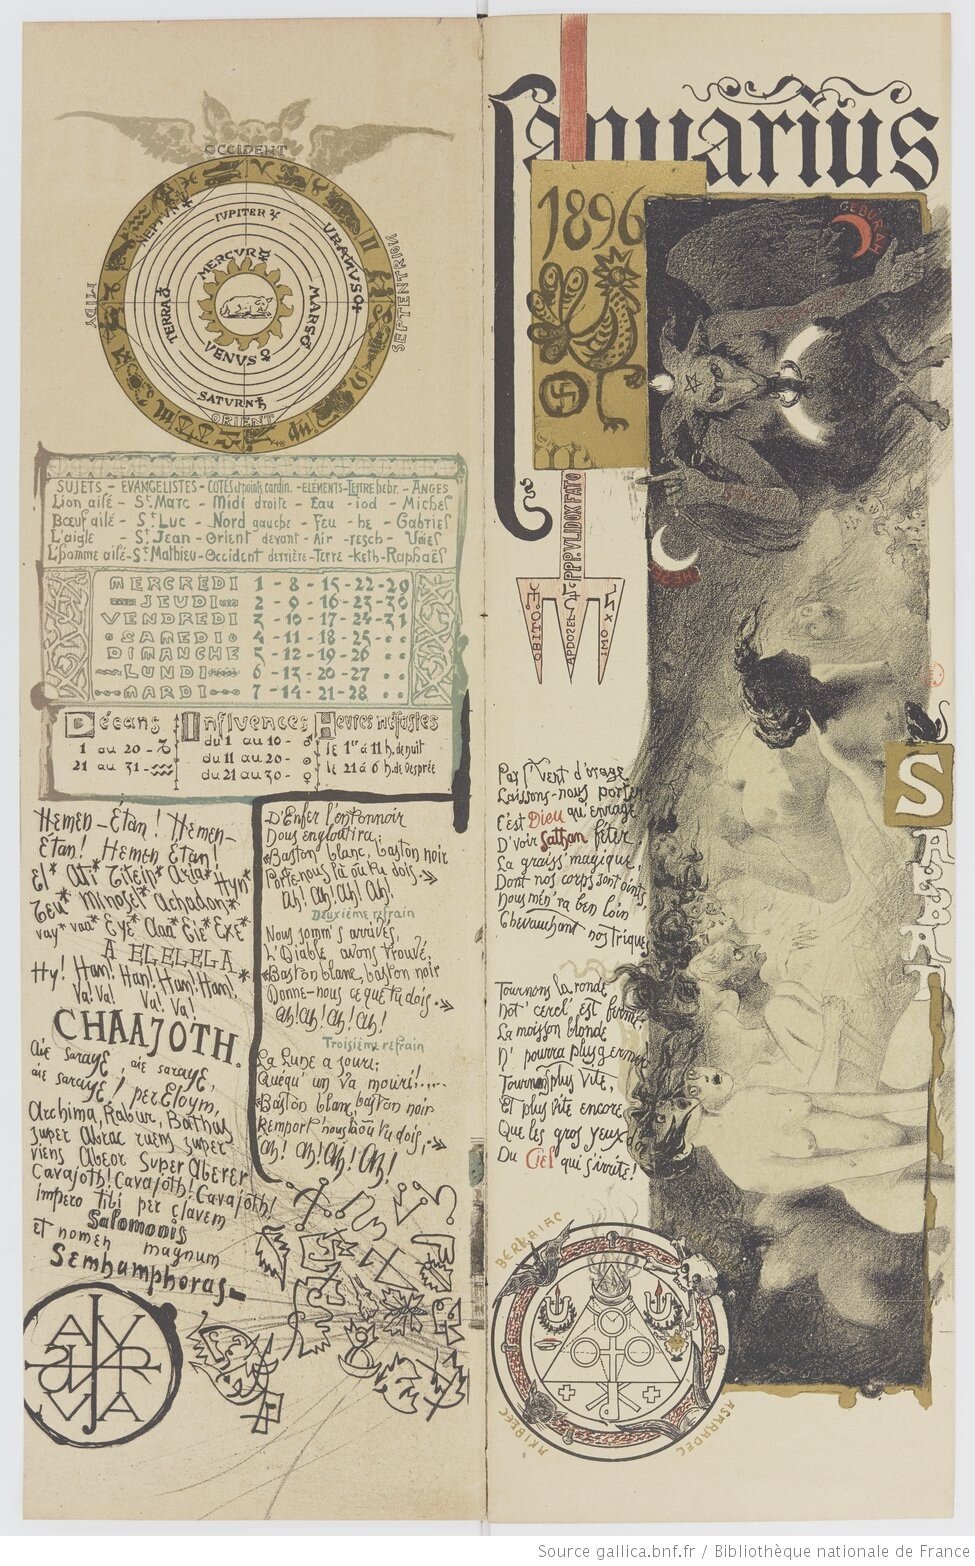 OCCIDENT
NEPTUN
IUPITER ♃
URANUS
MERCUR ☿
TERRA
MARS ♂
VENUS ♀
SATURN ♄
ORIENT
MIDY
SEPTENTRION
SUJETS - EVANGELISTES - COTÉS et points cardin. - ELÉMENTS - LETTRE hébr. - ANGES
Lion ailé - St. Marc - Midi droite - Eau - iod - Michel
Bœuf ailé - St Luc - Nord gauche - Feu - he - Gabriel
L'aigle - St. Jean - Orient devant - Air - resch - Uriel
L'homme ailé - St Mathieu - Occident derrière - Terre - keth - Raphaël
MERCREDI 1 - 8 - 15 - 22 - 29
JEUDI 2 - 9 - 16 - 23 - 30
VENDREDI 3 - 10 - 17 - 24 - 31
SAMEDI 4 - 11 - 18 - 25
DIMANCHE 5 - 12 - 19 - 26
LUNDI 6 - 13 - 20 - 27
MARDI 7 - 14 - 21 - 28
Décans
1 au 20 - ♑
21 au 31 - ♒
Influences
du 1 au 10 - ♂
du 11 au 20 -
du 21 au 30 - ♀
Heures néfastes
le 1er à 11 h. de nuit
le 21 à 6 h. de vesprée
Hemen - Étan! Hemen -
Étan! Hemen Étan!
El* Ati* Titeip* Azia* Hyn*
Teu* Minosel* Achadon*
vay* vaa* Eye* Aaa* Eie* Exe*
A EL EL EL A
Hy! Hau! Hau! Hau! Hau!
Va! Va! Va! Va!
CHAAJOTH.
Aie saraye, aie saraye,
aie saraye! per Eloym,
Archima, Rabur, Bathas
super Abrac ruens super
viens Abeor super Aberer
Cavajoth! Cavajoth! Cavajoth!
impero tibi per clavem
Salomonis
et nomen magnum
Semhamphoras
D'Enfer l'entonnoir
Vous engloutira;
Baston blanc, baston noir
Porte-nous là où tu dois
Ah! Ah! Ah! Ah!
Deuxième refrain
Nous somm's arrivés,
L'Diable avons trouvé,
Baston blanc, baston noir
Donne-nous ce que tu dois
Ah! Ah! Ah! Ah!
Troisième refrain
La Lune a souri:
Quequ'un va mouri!....
Baston blanc, baston noir
Remport'nous là où tu dois,
Ah! Ah! Ah! Ah!
Januarius
1896
GEBURAH
CHESED
PPPVLIDOXFATO
OBITO
APDOSEL
Par l'vent d'orage
Laissons-nous porter
C'est Dieu qu'enrage
D'voir Sathan fêter.
La graiss' magique
Dont nos corps sont oints
Nous mèn'ra ben loin
Chevauchant nos triques
Tournons la ronde
Not' cercl' est fermé.
La moisson blonde
N'pourra plus germer
Tournons plus vite,
Et plus vite encore
Que les gros yeux d'or
Du Ciel qui s'irrite!
SABBAT
BERKAIAC
AKIBEEC
ASARADEC
Source gallica.bnf.fr / Bibliothèque nationale de France